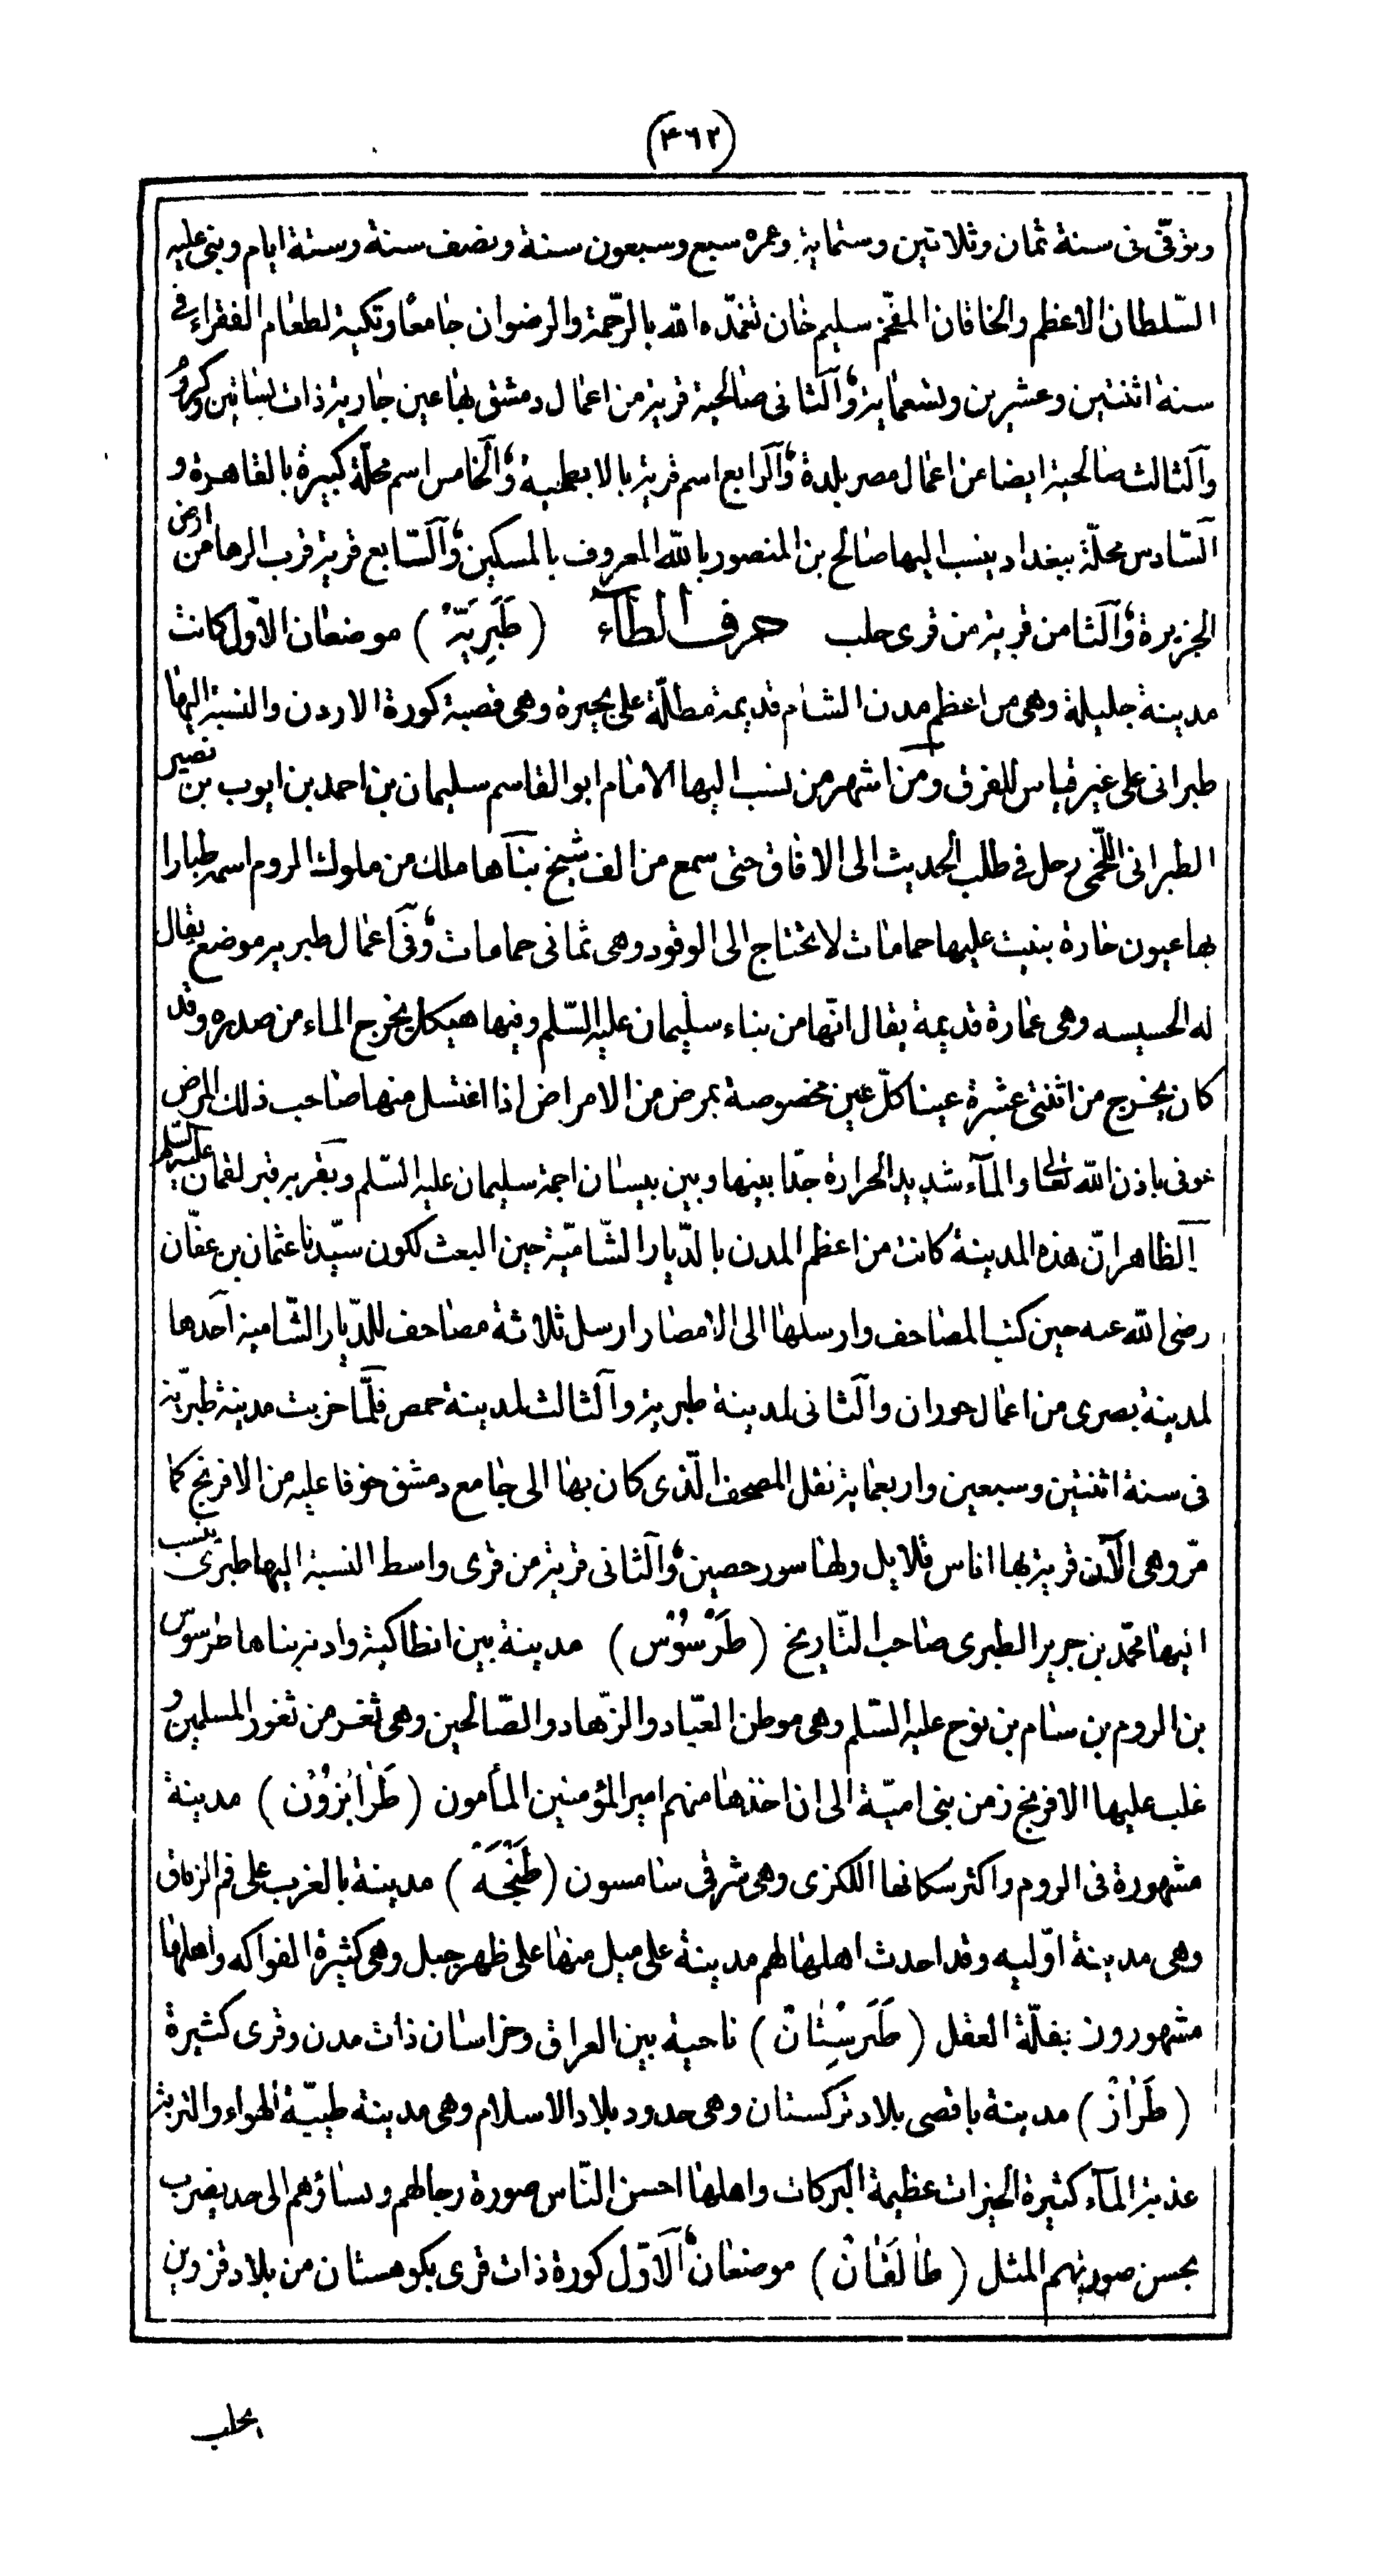 (٤٦٢)
وتوفى فى سنة ثمان وثلاثين وستماية وعمره سبع وسبعون سنة ونصف سنة وستة ايام وبنى عليه
السّلطان الاعظم والخاقان المفخّم سليم خان تغمّده الله بالرّحمة والرضوان جامعًا وتكية لطعام الفقراء فى
سنة اثنتين وعشرين وتسعماية والثانى صالحية قرية من اعمال دمشق بها عين جارية ذات بساتين وكروم
والثالث صالحية ايضا من اعمال مصر بلدة والرابع اسم قرية بالا بطحية والخامس اسم محلّة كبيرة بالقاهرة و
السّادس محلّة ببغداد ينسب اليها صالح بن المنصور بالله المعروف بالمسكين والسّابع قرية قرب الرها من ارض
الجزيرة والثامن قرية من قرى حلب حرف الطآء (طَبَرِيَّة) موضعان الاوّل كانت
مدينة جليلة وهى من اعظم مدن الشام قديمة مطلّة على بحيرة وهى قصبة كورة الاردن والنسبة اليها
طبرانى على غير قياس للفرق ومن اشهر من نسب اليها الامام ابو القاسم سليمان بن احمد بن ايوب بن نصير
الطبرانى اللّخمى رحل فى طلب الحديث الى الافاق حتى سمع من الف شيخ بناها ملك من ملوك الروم اسمه طبارا
بها عيون حارة بنيت عليها حمامات لا تحتاج الى الوقود وهى ثمانى حمامات وفى اعمال طبرية موضع يقال
له الحسيسه وهى عمارة قديمة يقال انّها من بناء سليمان عليه السّلم وفيها هيكل يخرج الماء من صدره وقد
كان يخرج من اثنتى عشرة عينا كلّ عين مخصوصة بمرض من الامراض اذا اغتسل منها صاحب ذلك المرض
عوفى باذن الله تعالى والمآء شديد الحرارة جدّا بينها وبين بيسان اجمة سليمان عليه السّلم وبقربه قبر لقمان عليه السّلم
الظاهر انّ هذه المدينة كانت من اعظم المدن بالدّيار الشّاميّة حين البعث لكون سيّدنا عثمان بن عفّان
رضى الله عنه حين كتب المصاحف وارسلها الى الامصار ارسل ثلاثة مصاحف للدّيار الشّامية احدها
لمدينة بصرى من اعمال حوران والثانى لمدينة طبرية والثالث لمدينة حمص فلمّا خربت مدينة طبريّة
فى سنة اثنتين وسبعين واربعماية نقل المصحف الّذى كان بها الى جامع دمشق خوفا عليه من الافرنج كما
مرّ وهى الآن قرية بها اناس قلايل ولها سور حصين والثانى قرية من قرى واسط النسبة اليها طبرى ينسب
اليها محمّد بن جرير الطبرى صاحب التّاريخ (طَرْسُوْس) مدينة بين انطاكية وادنه بناها طرسوس
بن الروم بن سام بن نوح عليه السّلم وهى موطن العبّاد والزّهاد والصّالحين وهى ثغر من ثغور المسلمين و
غلب عليها الافرنج زمن بنى اميّة الى ان اخذها منهم امير المؤمنين المأمون (طَرَابُزُوُن) مدينة
مشهورة فى الروم واكثر سكانها اللكزى وهى شرقى سامسون (طَنْجَة) مدينة بالغرب على فم الزقاق
وهى مدينة اوّليه وقد احدث اهلها لهم مدينة على ميل منها على ظهر جبل وهى كثيرة الفواكه واهلها
مشهورون بقلّة العقل (طَبَرسِتَان) ناحية بين العراق وخراسان ذات مدن وقرى كثيرة
(طَرَاز) مدينة باقصى بلاد تركستان وهى حدود بلاد الاسلام وهى مدينة طيبّة الهواء والتربة
عذبة المآء كثيرة الخيرات عظيمة البركات واهلها احسن النّاس صورة رجالهم ونساؤهم الى حد يضرب
بحسن صورتهم المثل (طَالَقَان) موضعان الاوّل كورة ذات قرى بكوهستان من بلاد قزوين